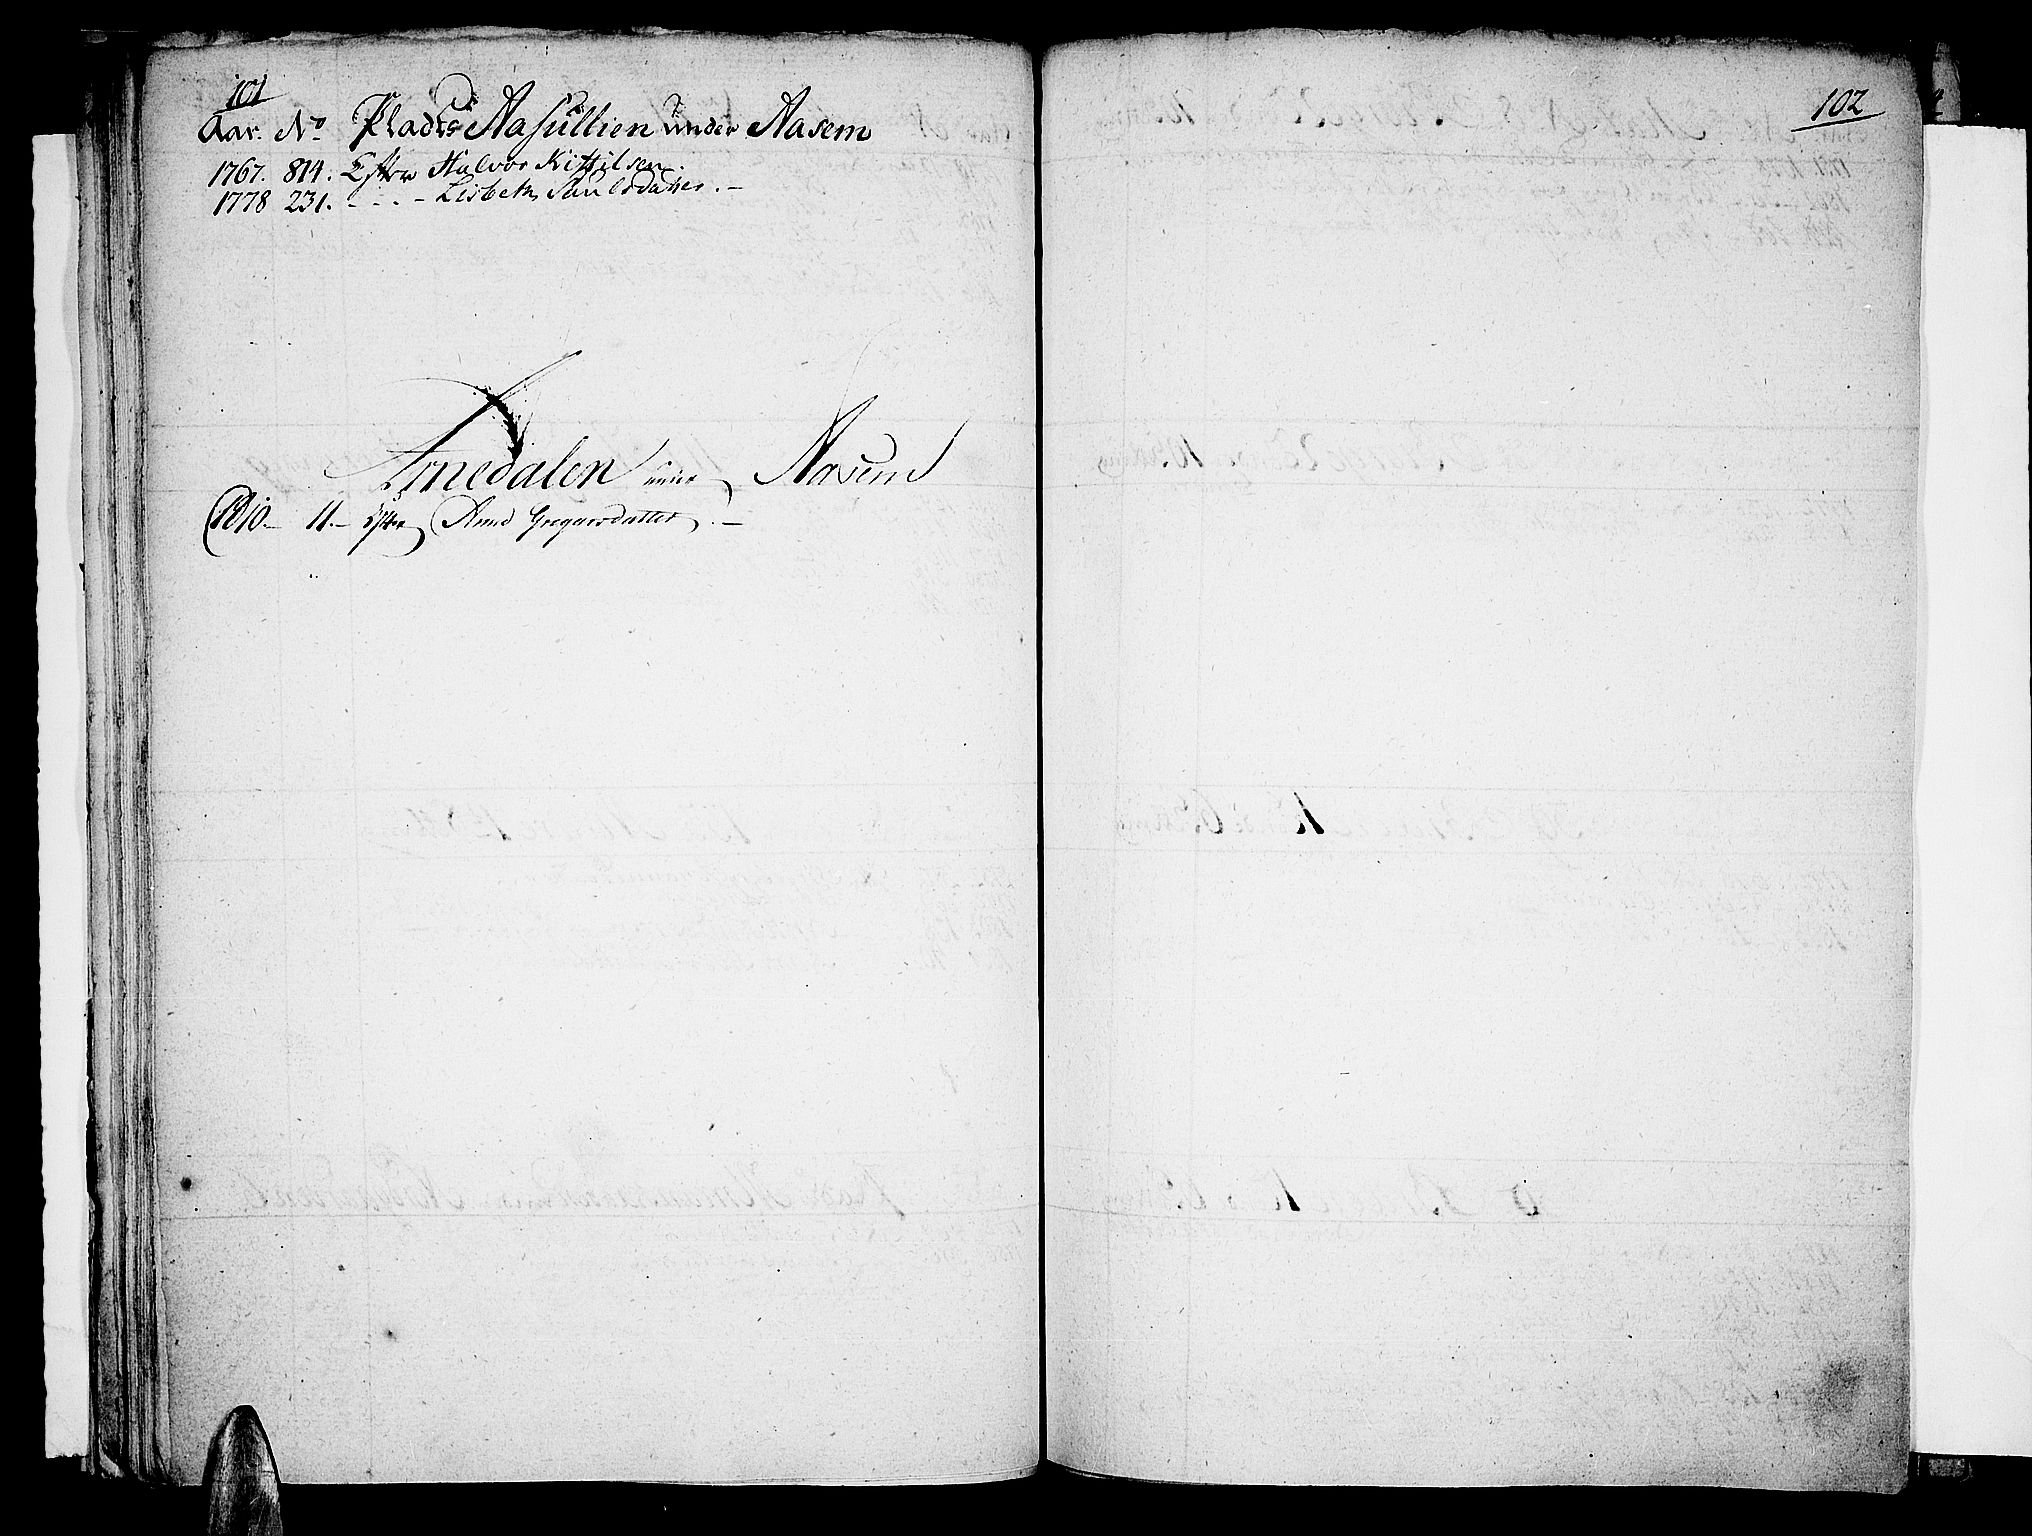 101
Aar. No Pladts Aasullien under Aasem
1767. 814. Efter Halvor Kittilsen.
1778 231. - . . - Lisbeth Saulsdatter. -
Arnedalen under Aasem
1810 - 11. - Efter Anne Gregarsdatter. -
102